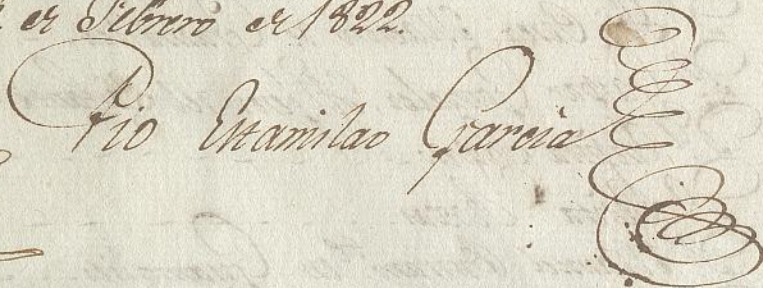 de Febrero de 1822.
Pio Estanislao Garcia